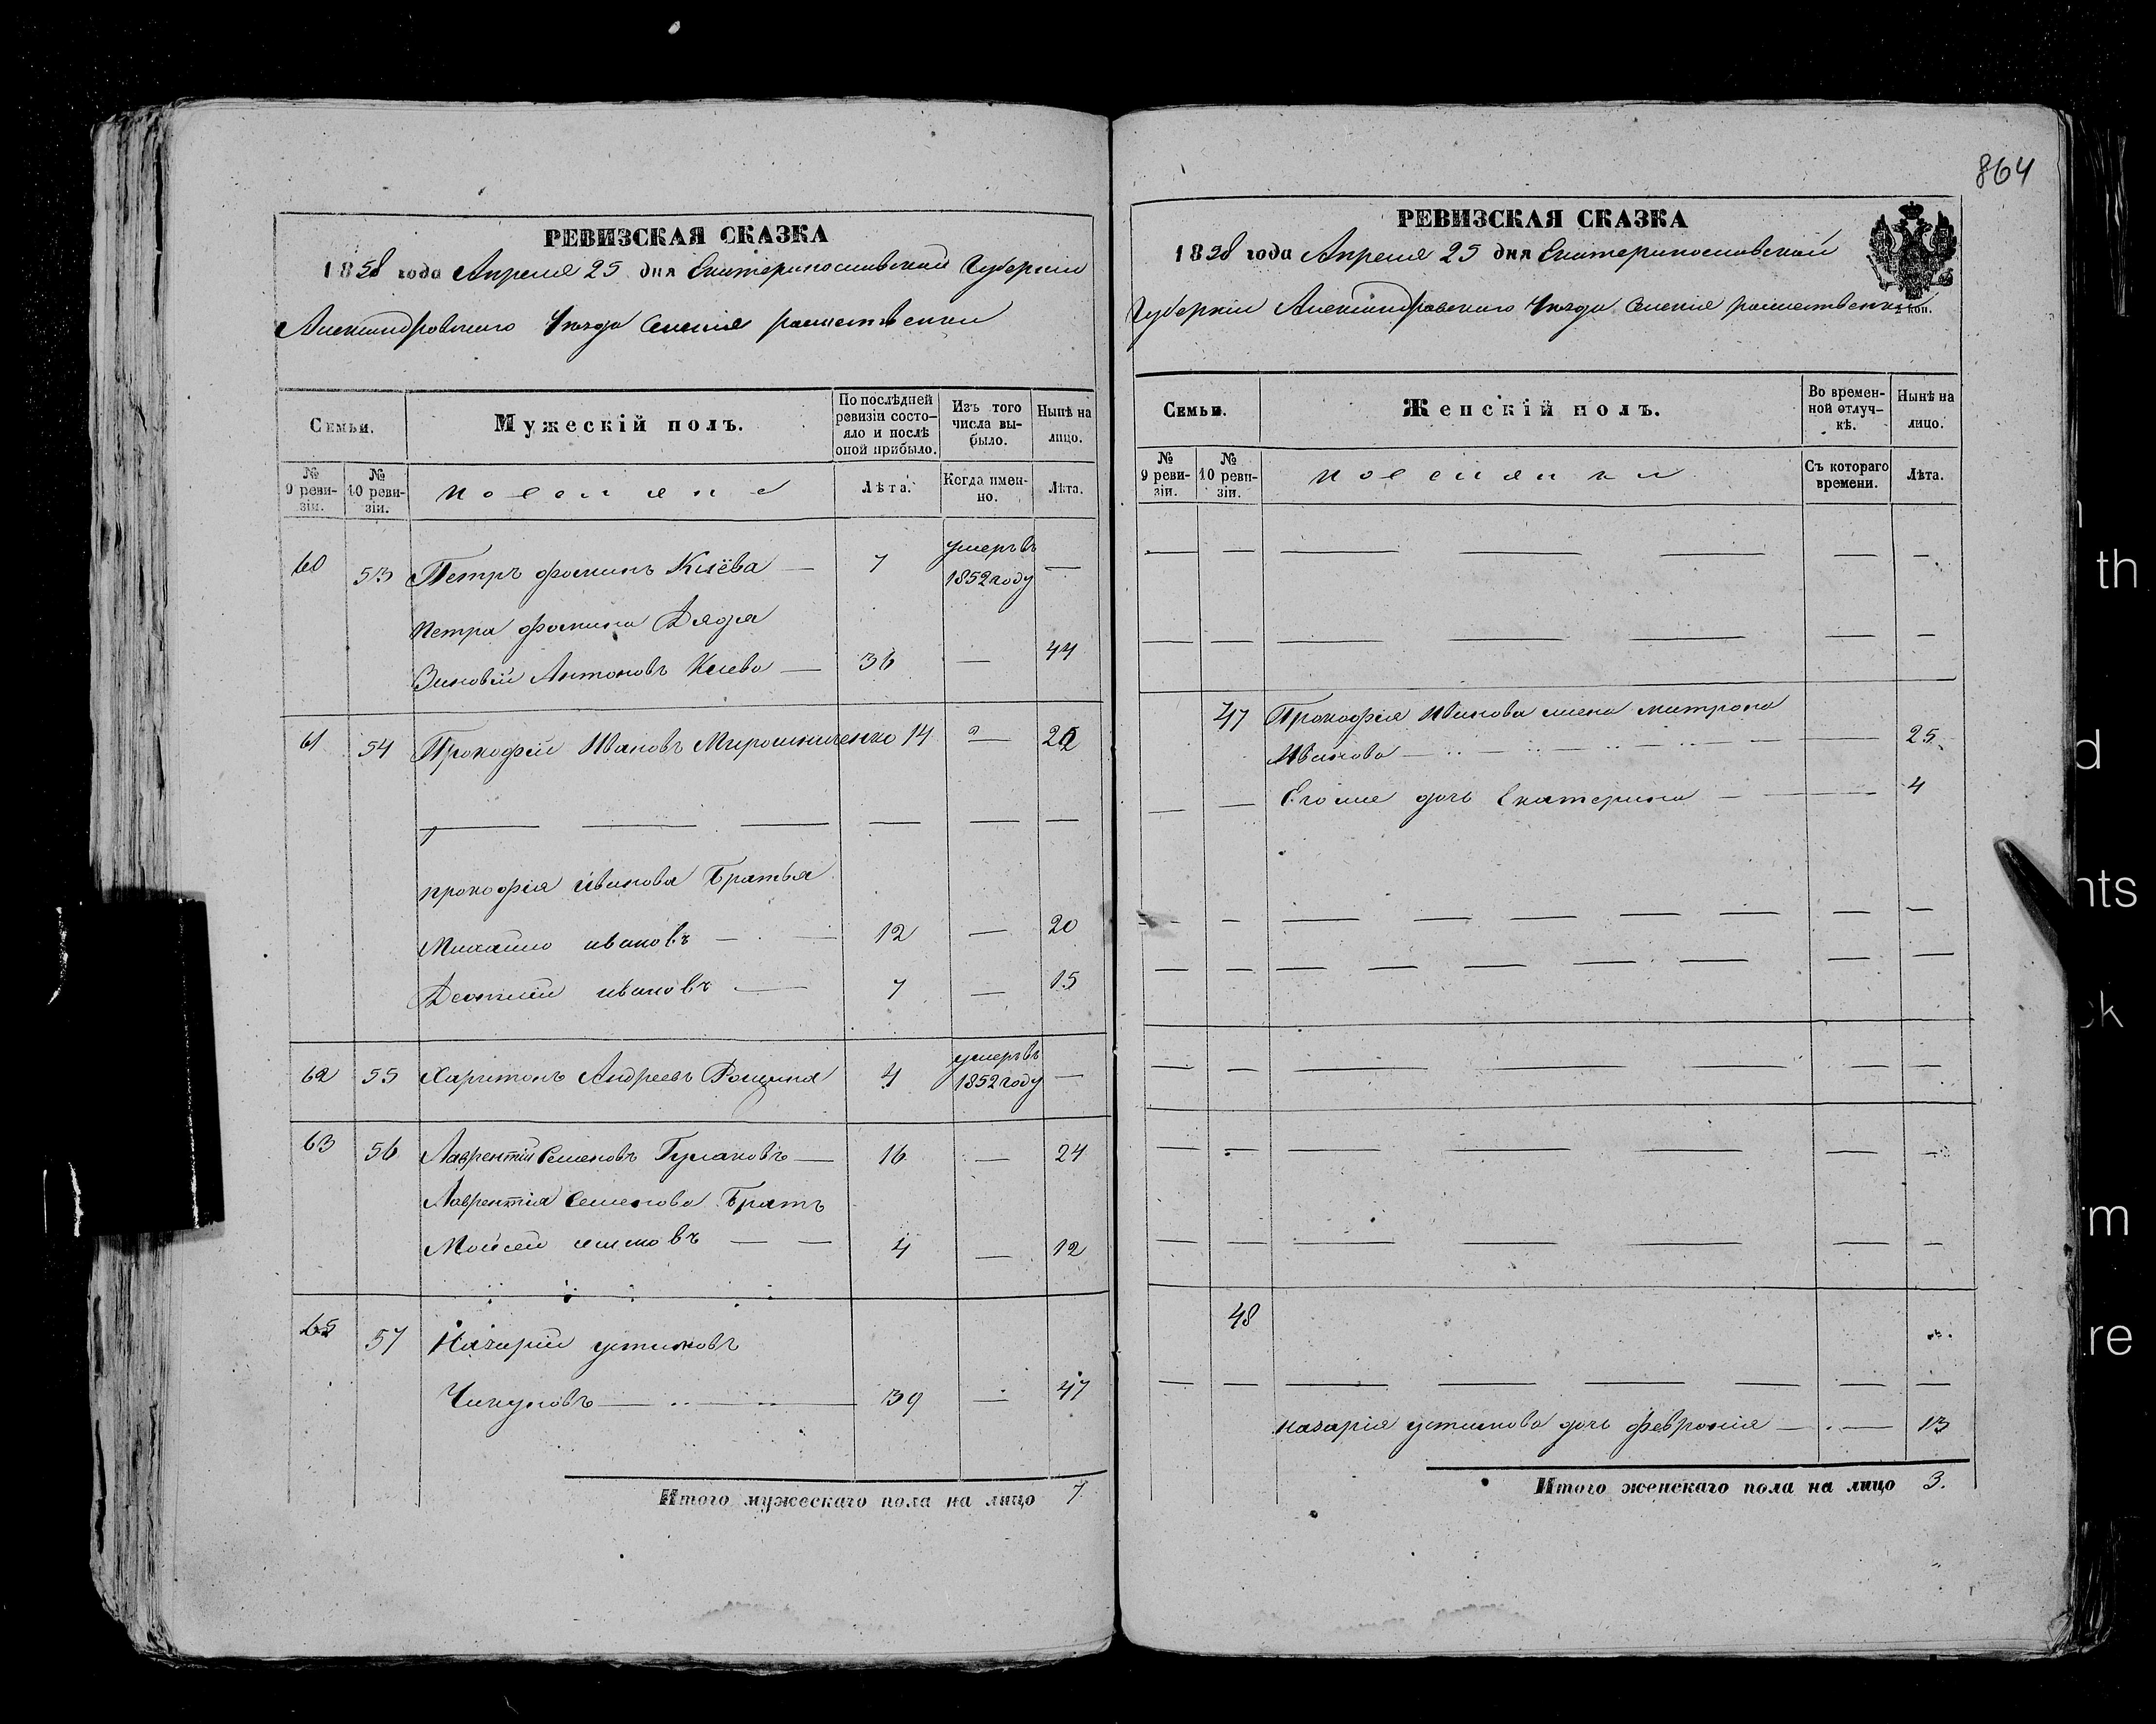 864
РЕВИЗСКАЯ СКАЗКА
1858 года Апреля 25 дня Екатеринославской Губерніи
Александровскаго Уезда Селенія рашественки
Семьи.
Мужескій полъ.
По послѣдней ревизіи состо-
яло и послѣ
оной прибыло.
Изъ того
числа вы-
было.
Нынѣ на
лицо.
№
9 реви-
зіи.
№
10 реви-
зіи.
поселяне
Лѣта.
Когда имен-
но.
Лѣта.
60 53 Петръ фоминъ Кіёва — 7 умеръ въ 1852 году —
Петра фомина Дядя
Зиновій Антоновъ Киево — 36 — 44
61 54 Прокофій Ивановъ Мирошниченко 14 —
прокофія иванова Братья
Михайло ивановъ — 12 — 20
ивановъ — 7 — 15
62 55 Харитонъ Андреевъ 4 умеръ въ 1852 году —
63 56 Лаврентій Семеновъ — 16 — 24
Лаврентія Семенова Братъ
Мойсей — — 4 — 12
65 57 Назарій устиновъ
39 — 47
Итого мужескаго пола на лицо 7
РЕВИЗСКАЯ СКАЗКА
1858 года Апреля 25 дня Екатеринославской
Губерніи Александровскаго Уезда Селенія рашественки
2 коп.
Семьи.
Женскій полъ.
Во времен-
ной отлуч-
кѣ.
Нынѣ на
лицо.
№
9 реви-
зіи.
№
10 реви-
зіи.
поселянки
Съ котораго
времени.
Лѣта.
47 Прокофія Иванова жена митрона
Иванова — 25
Его же дочь Екатерина — 4
48
назарія устинова дочь феврония — 13
Итого женскаго пола на лицо 3.
th
d
nts
ck
rm
re